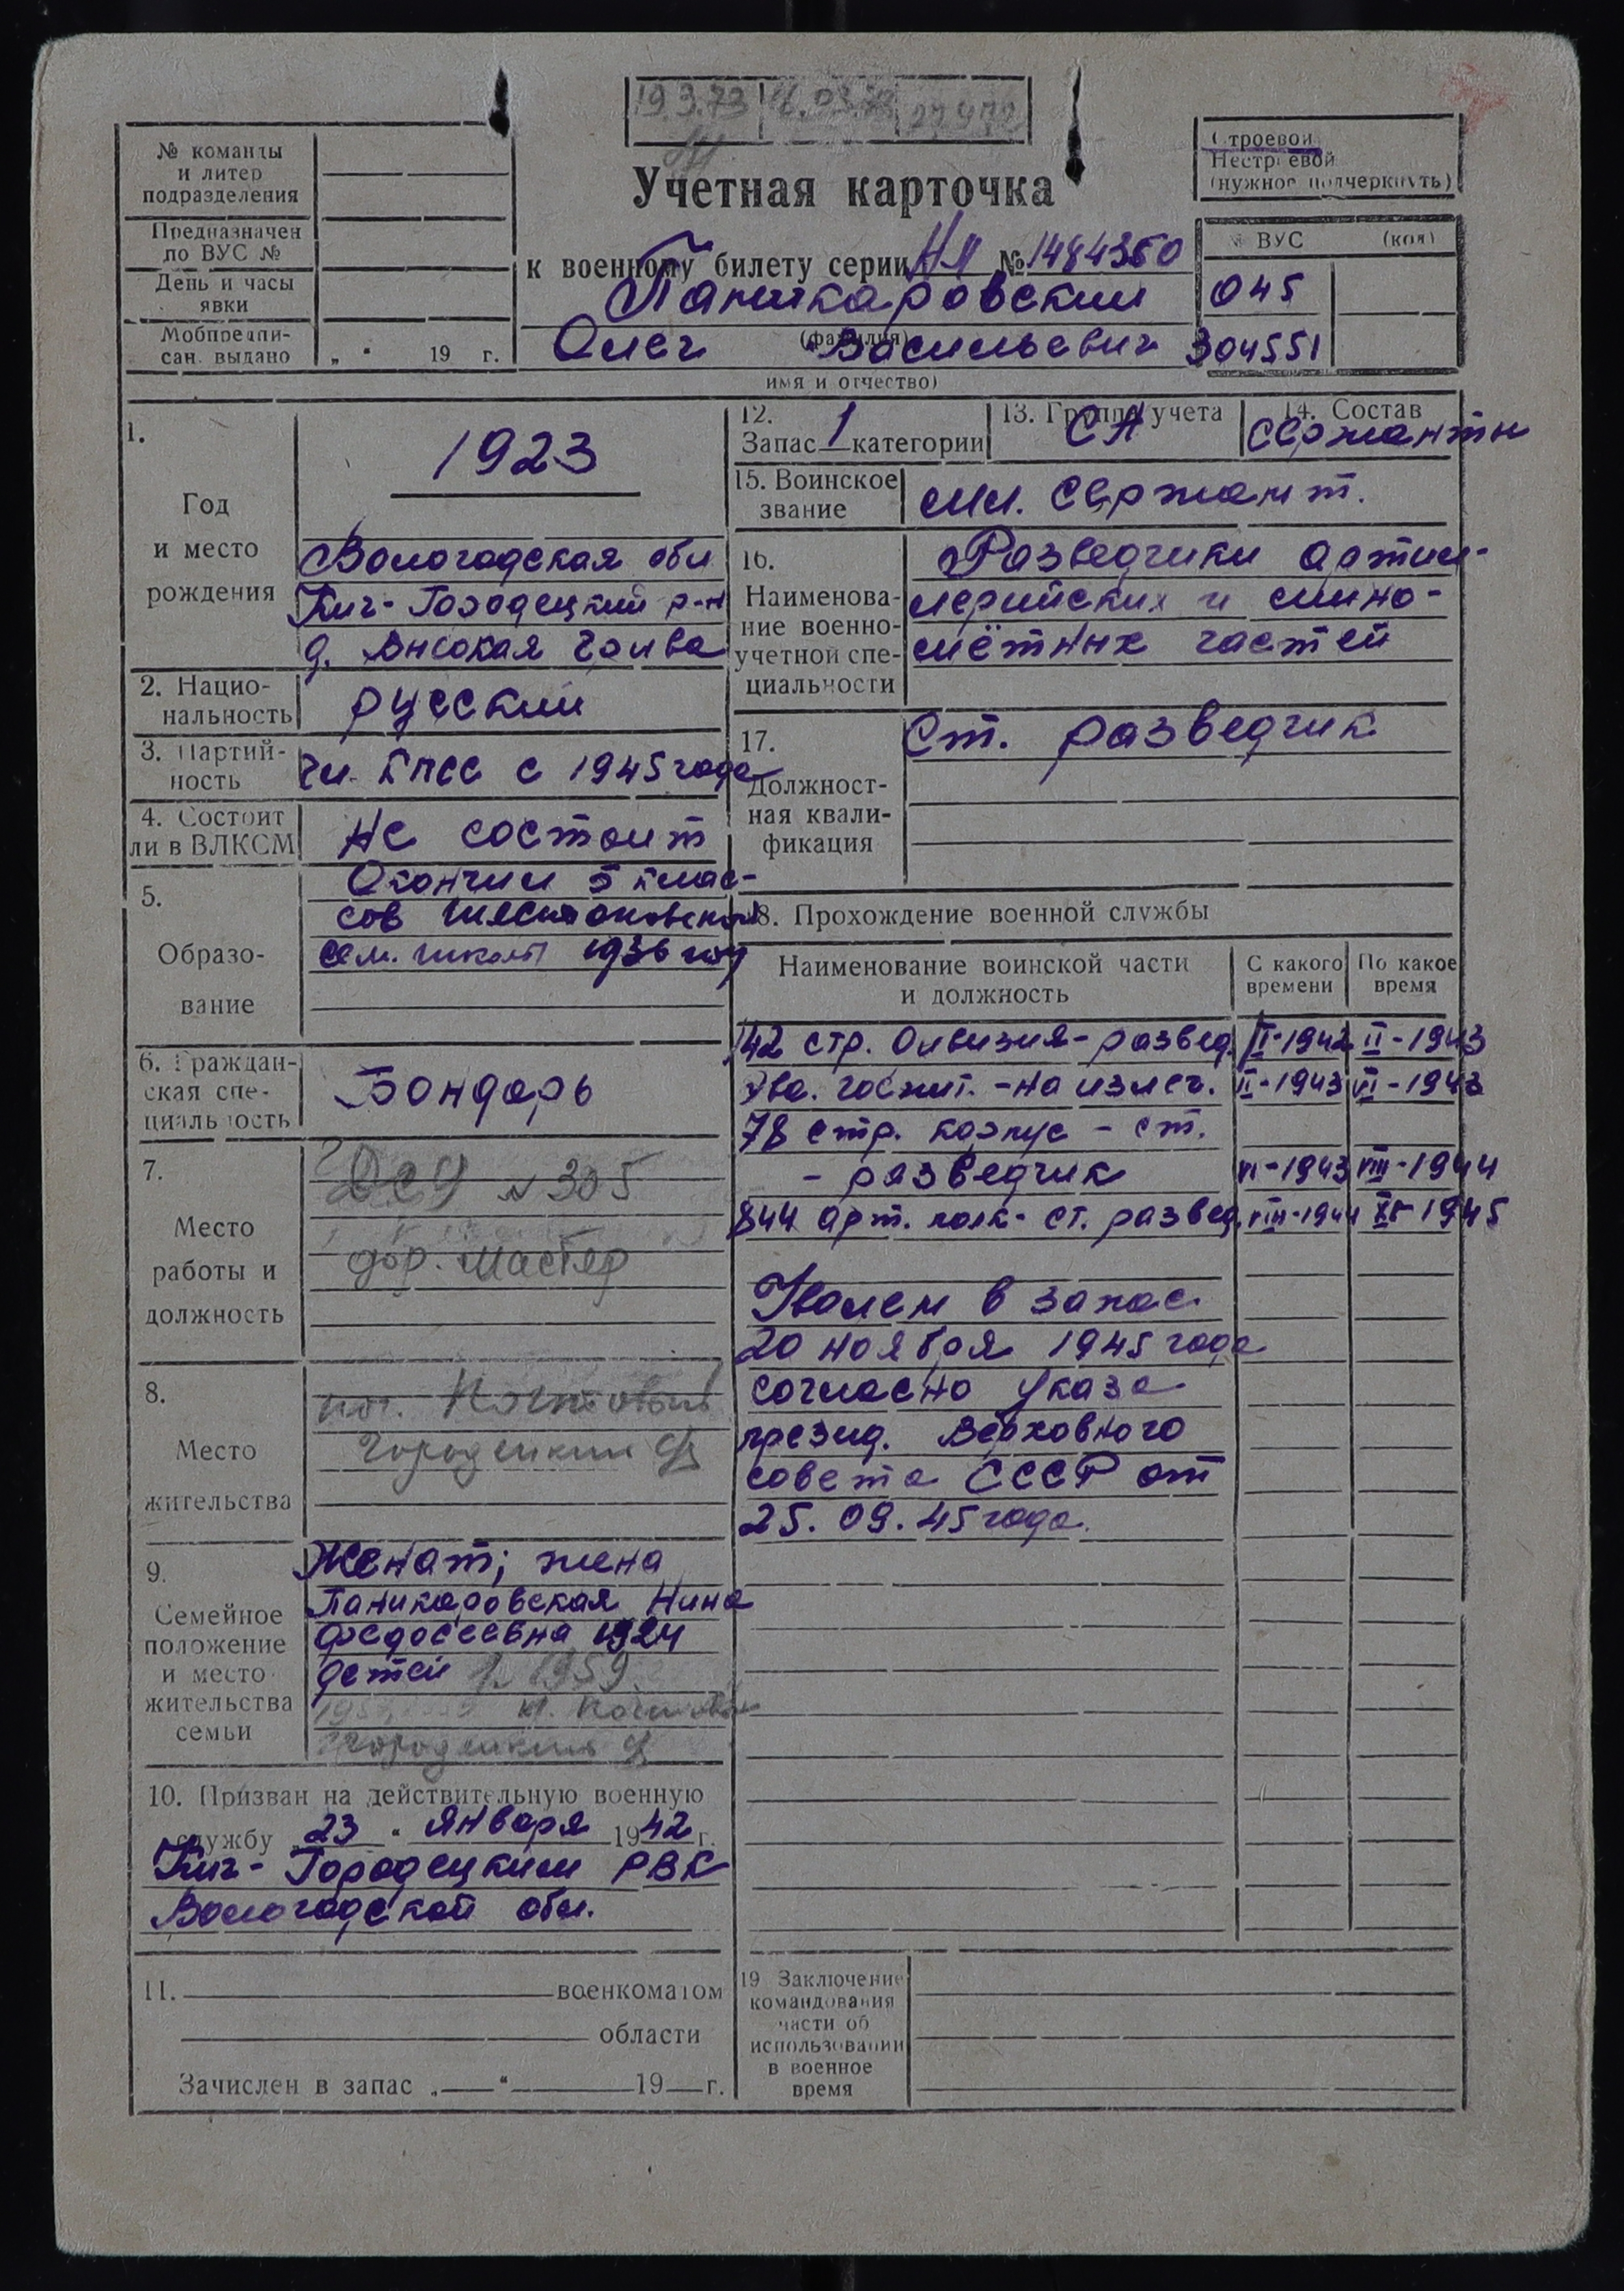 19.3.73
№ команды
и литер
подразделения
Предназначен
по ВУС №
День и часы
явки
Мобпредпи-
сан. выдано „ “ 19 г.
Учетная карточка
к военному билету серии НП № 1484350
Паникаровский
(фамилия)
Олег Васильевич
имя и отчество)
Строевой
Нестроевой
(нужное подчеркнуть)
№ ВУС (код)
045
304551
1.
Год
и место
рождения
1923
Вологодская обл
Кич-Городецкий р-н
д. Высокая Грива
2. Нацио-
нальность
русский
3. Партий-
ность
Чл. КПСС с 1945 года
4. Состоит
ли в ВЛКСМ
Не состоит
5.
Образо-
вание
Окончил 5 клас-
сов
сем. школы 1936 год
6. Граждан-
ская спе-
циальность
Бондарь
7.
Место
работы и
должность
ДСУ №305
дор. мастер
8.
Место
жительства
Городецкий
9.
Семейное
положение
и место
жительства
семьи
Женат; жена
Паникаровская Нина
Федосеевна 1924
детей 1. 1959
Городецкий
10. Призван на действительную военную
службу „23“ января 1942 г.
Кич-Городецким РВК
Вологодской обл.
11. военкоматом
области
Зачислен в запас „ “ 19 г.
12.
Запас 1 категории
13. Группа учета
СА
14. Состав
сержанты
15. Воинское
звание
мл. сержант.
16.
Наименова-
ние военно-
учетной спе-
циальности
Разведчики артил-
лерийских и мино-
мётных частей
17.
Должност-
ная квали-
фикация
Ст. разведчик
18. Прохождение военной службы
Наименование воинской части
и должность
С какого
времени
По какое
время
142 стр. дивизия - развед. II-1942 II-1943
Эва. госпит. - на излеч. II-1943 VI-1943
78 стр. корпус - ст.
- разведчик VI-1943 VIII-1944
844 арт. полк - ст. развед. VIII-1944 XI-1945
Уволен в запас
20 ноября 1945 года
согласно указа
презид. Верховного
совета СССР от
25.09.45 года.
19 Заключение
командования
части об
использовании
в военное
время